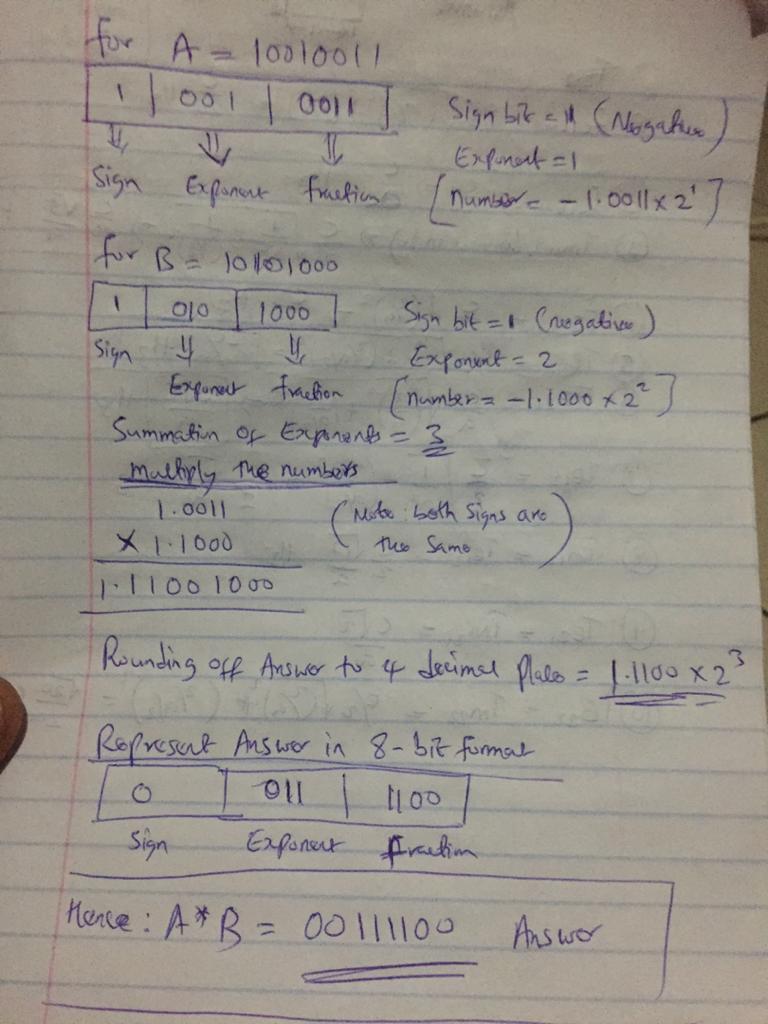 for A = 10010011
1 | 001 | 0011
Sign bit = 1 (Negative)
⇓ ⇓ ⇓
Exponent = 1
Sign Exponent fraction
[number = -1.0011 x 2^1]
for B = 10101000
1 | 010 | 1000
Sign bit = 1 (negative)
Sign ⇓ ⇓
Exponent = 2
Exponent fraction
[number = -1.1000 x 2^2]
Summation of Exponents = 3
multiply the numbers
1.0011
(Note: both signs are
x 1.1000
the same)
1.11001000
Rounding off Answer to 4 decimal place = 1.1100 x 2^3
Represent Answer in 8-bit format
0 | 011 | 1100
Sign Exponent fraction
Hence: A*B = 00111100 Answer